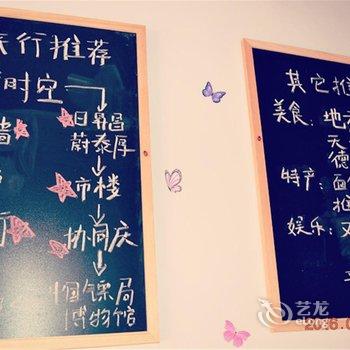 旅行推荐
时空
日昇昌
墙
蔚泰厚
市楼
协同庆
中国镖局
博物馆
其它推
美食:
地
天
德
特产:
面
推
娱乐:
又
艺龙
eLong
2016.0